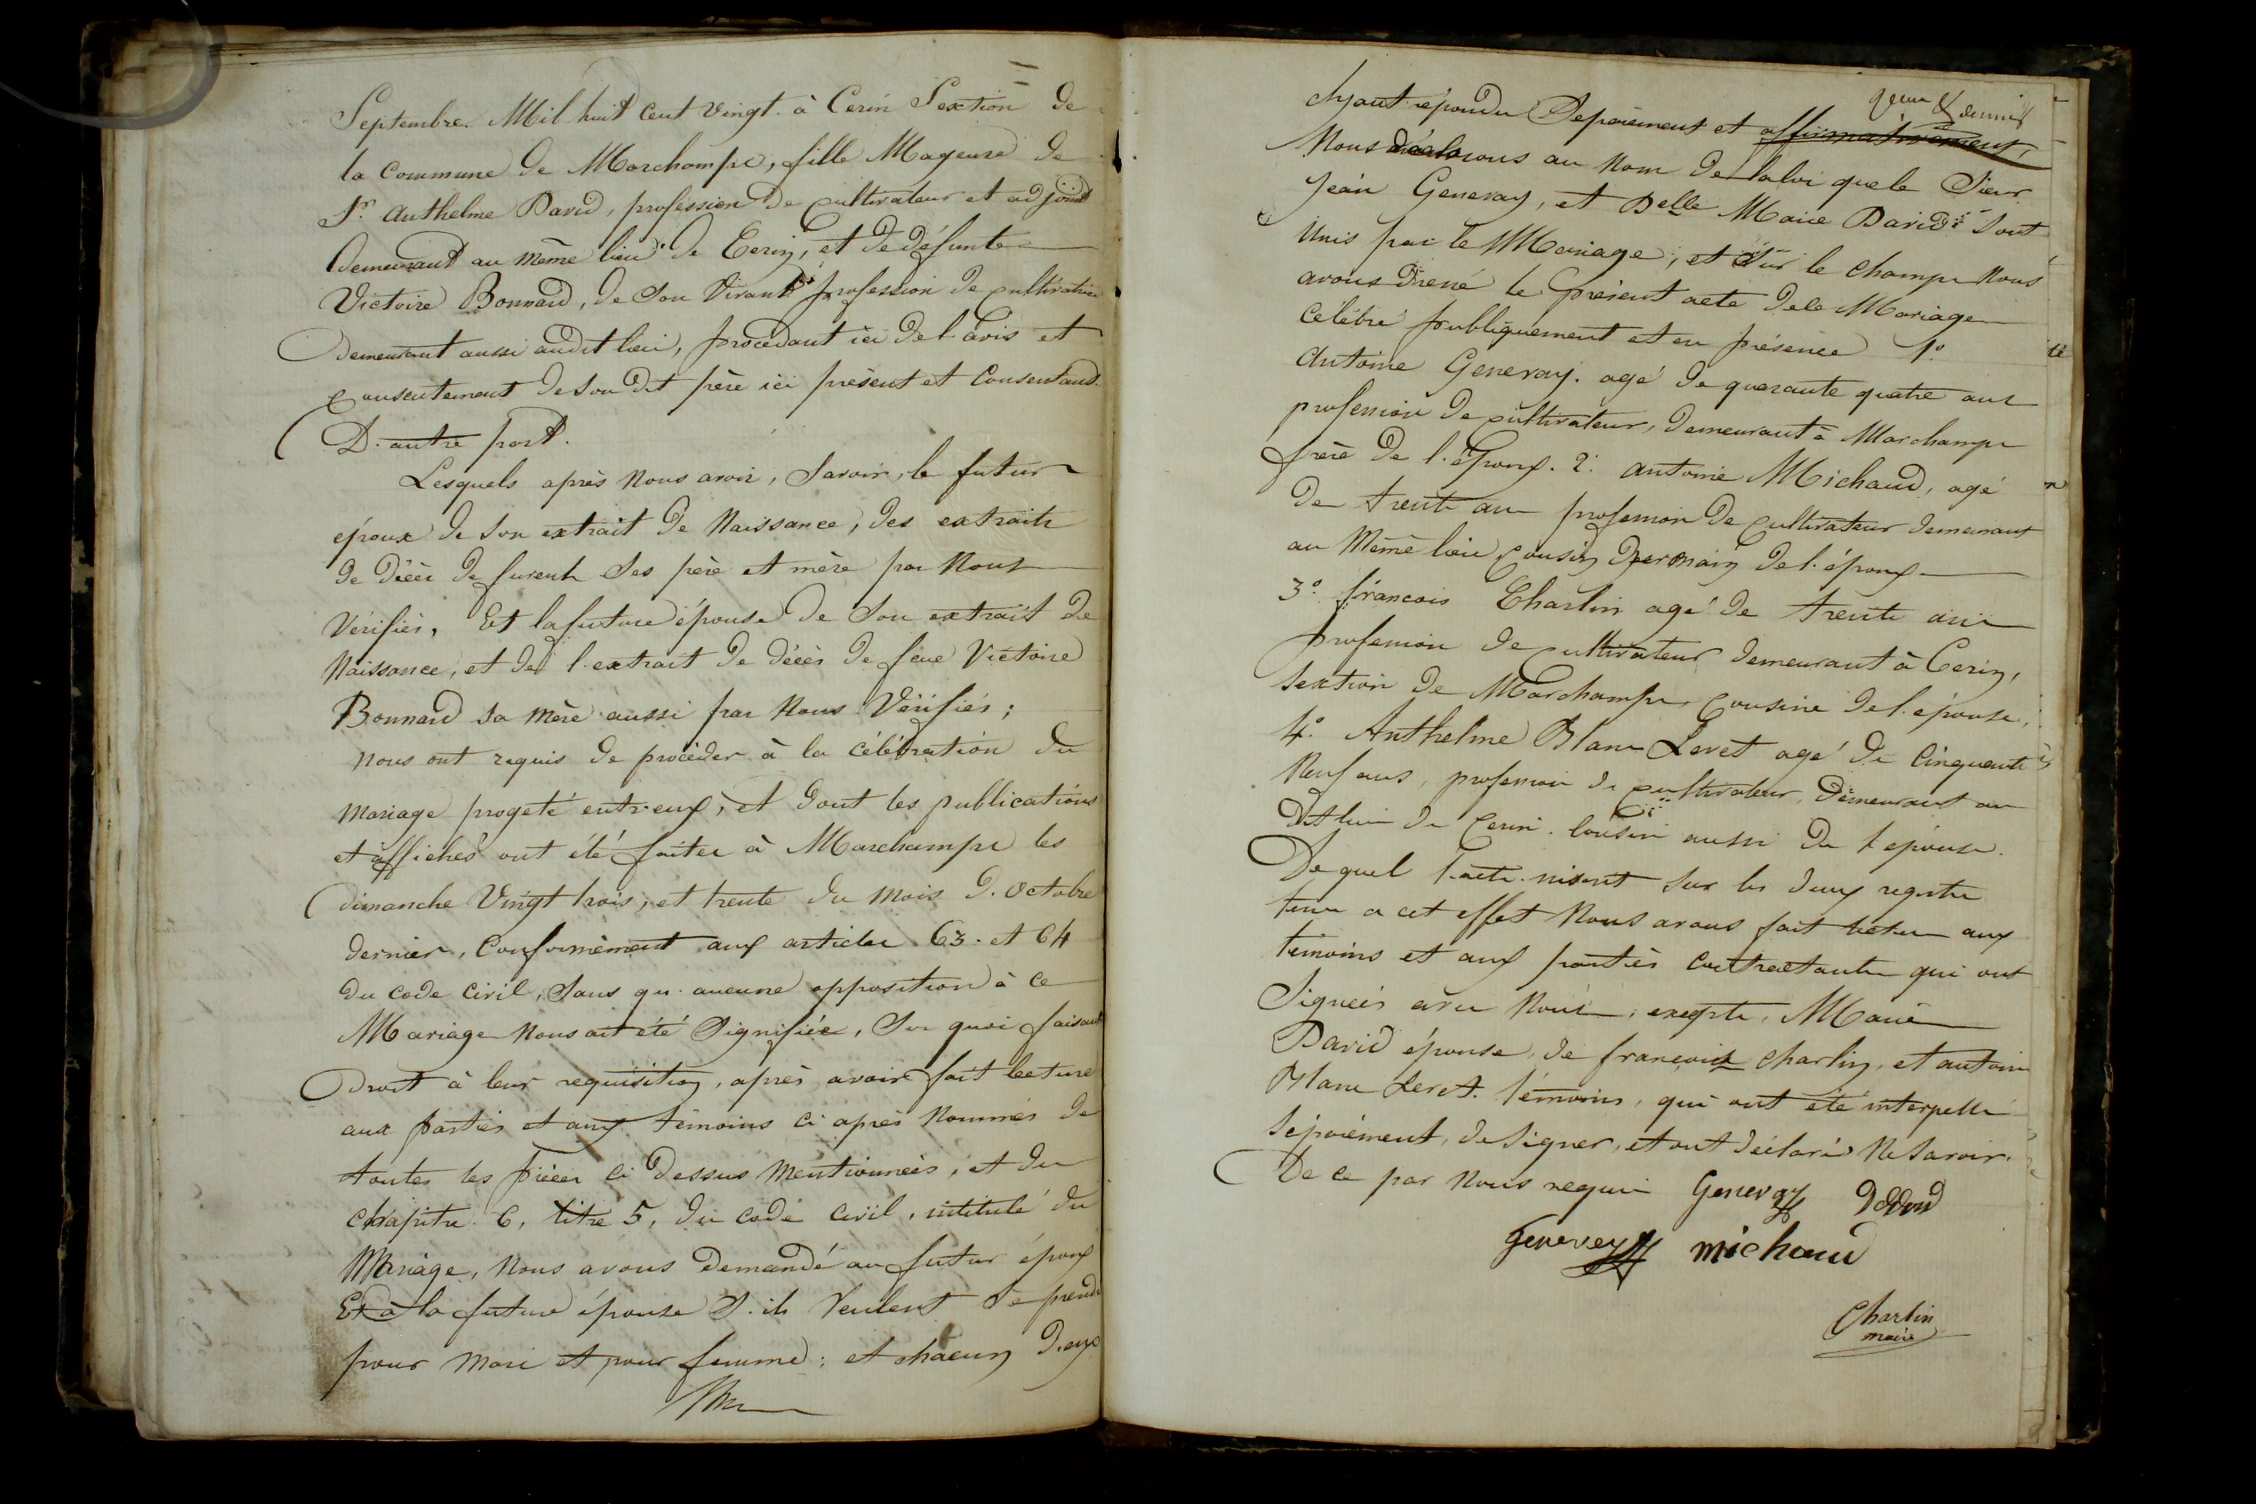 Septembre Mil huit cent vingt. à Cerin Sextion de
la Commune de Marchampt, fille Mageure de
Sr. Anthelme David, profession de cultivateur et adjoint
demeurant au même lieu de Cerin, et de défunte
Victoire Bonnard, de son vivant profession de cultivatrice
demeurant aussi audit lieu, procédant ici de l'avis et
consentement de son dit père ici présent et consentant.
D'autre part.
Lesquels après nous avoir, savoir, le futur
époux de son extrait de Naissance, des extraits
de décès de furent ses père et mère par Nous
Vérifiés, Et la future épouse de son extrait de
Naissance, et de l'extrait de décès de feue Victoire
Bonnard sa mère aussi par Nous Vérifiés;
nous ont requis de procéder à la célébration du
mariage progeté entr'eux, et dont les publications
et affiches ont été faites à Marchampt les
dimanche Vingt trois, et trente du mois d'octobre
dernier, Conformément aux articles 63. et 64
du code civil, sans qu'aucune opposition à ce
Mariage nous ait été signifiée, Sur quoi faisant
droit à leur requisition, après avoir fait lecture
aux parties et aux témoins ci après nommés de
toutes les pièces ci dessus mentionnées, et du
chapitre 6, titre 5, du code civil, intitulé du
Mariage, nous avons demandé au futur époux
Et à la future épouse s'ils veulent se prendre
pour mari et pour femme; et chacun d'eux
ayant répondu séparément et affirmativement,
Nous déclarons au nom de la loi que le Sieur
Jean Genevay, et Delle Marie David sont
unis par le Mariage, et sur le champ nous
avons dressé le présent acte de Mariage
célébré publiquement et en présence 1o.
Antoine Genevay. agé de quarante quatre ans
profession de cultivateur, demeurant à Marchampt
frère de l'époux. 2o. antoine Michaud, agé
de trente ans profession de cultivateur demeurant
au même lieu cousin germain de l'époux
3o. françois Charlin agé de trente ans
profession de cultivateur demeurant à Cerin,
sextion de Marchampt, cousin de l'épouse,
4o. Anthelme Blanc Levet agé de cinquante
neuf ans, profession de cultivateur, demeurant au
dit lieu de Cerin. cousin aussi de l'épouse.
Dequel l'acte inscrit sur les deux registres
tenu a cet effet Nous avons fait lecture aux
témoins et aux parties contractantes qui ont
signées avec Nous, excepte, Marie
David épouse, de françois charlin, et antoine
Blanc Levet. témoins, qui ont été interpellé
séparément, de signer, et ont déclaré ne savoir.
De ce par nous requis Genevay David
Genevey michaud
Charlin
maire